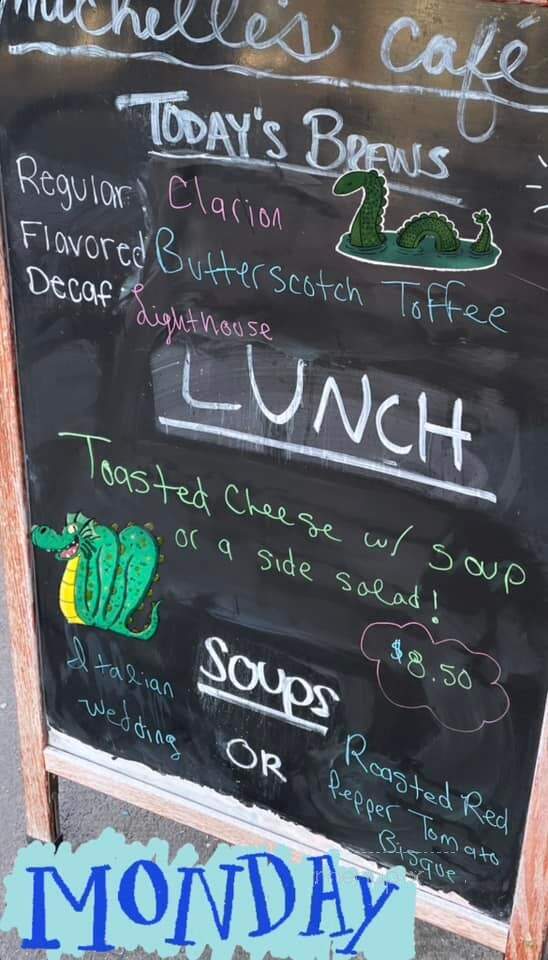 Michelle's café
TODAY'S BREWS
Regular Clarion
Flavored Butterscotch Toffee
Decaf Lighthouse
LUNCH
Toasted Cheese w/ soup
or a side salad!
$8.50
Soups
Italian
Wedding
OR
Roasted Red
Pepper Tomato
Bisque.
MONDAY